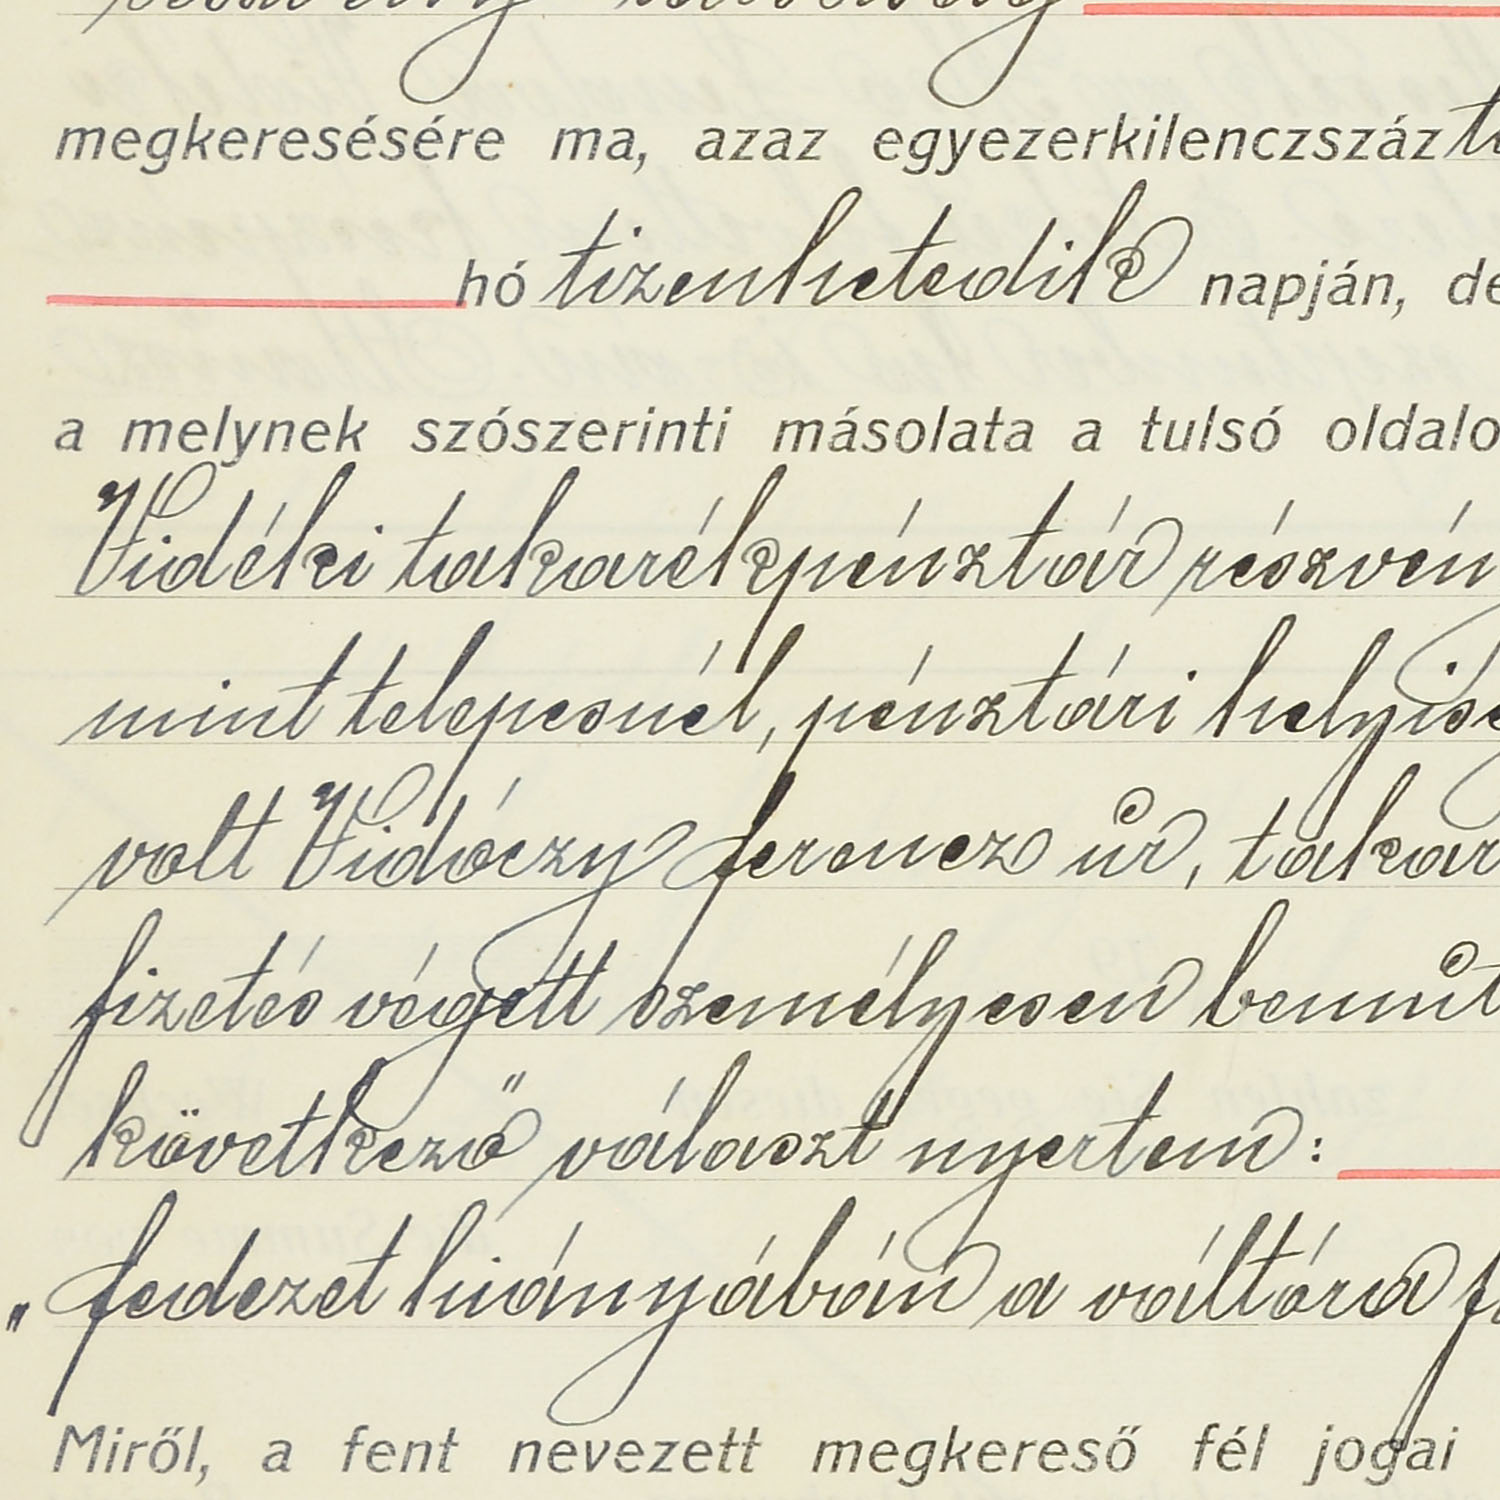 megkeresésére ma, azaz egyezerkilenczszáz
hó tizenhetedik napján, de
a melynek szószerinti másolata a tulsó oldalo
Vidéki takarékpénztár részvén
mint telepesnél, pénztári helyisé
volt Vidóczy ferencz úr, takar
fizetés végett személyesen bemút
következő választ nyertem:
„fedezet hiányában a váltóra f
Miről, a fent nevezett megkereső fél jogai